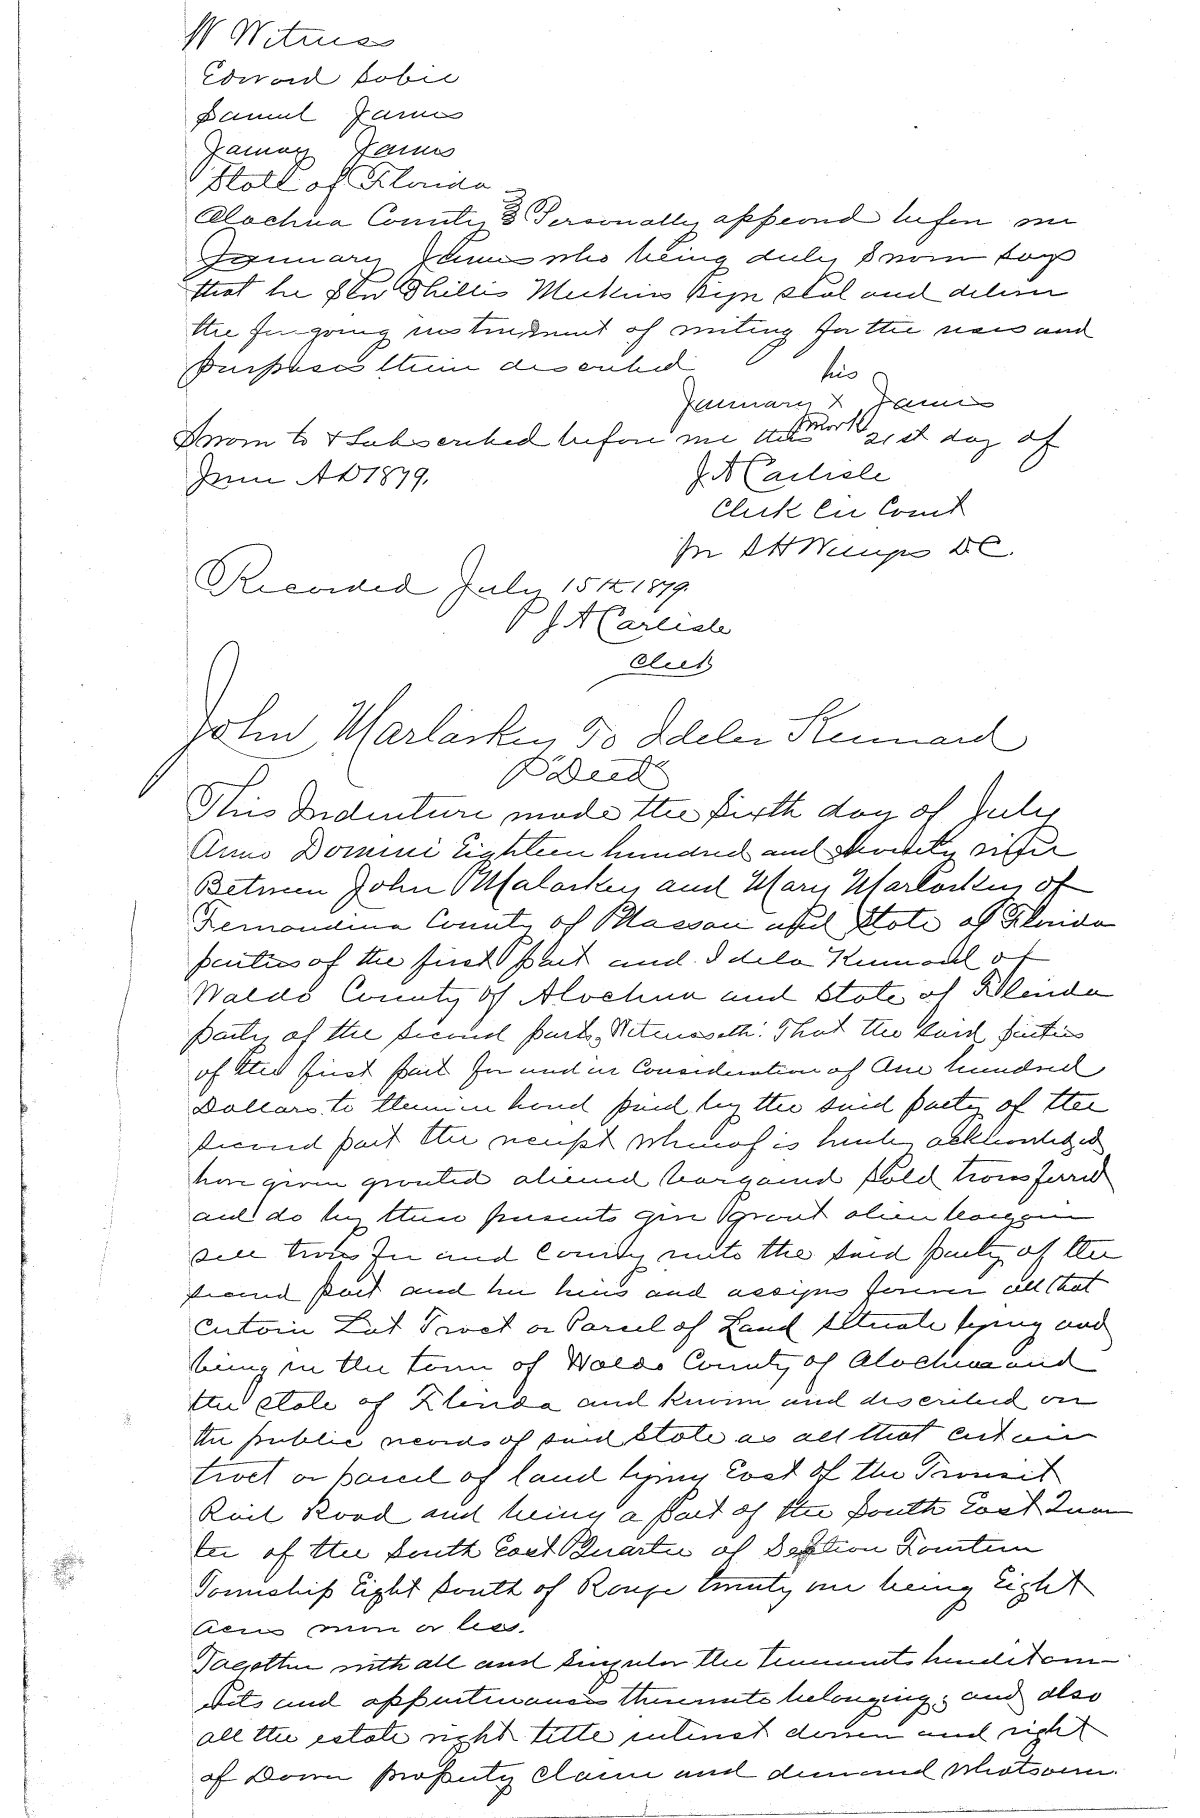 Witness
Edward Sobie
Samuel James
January James
State of Florida
Alachua County } Personally appeard before me
January James who being duly Sworn says
that he saw Phillis Meekins sign seal and deliver
the foregoing instrument of writing for the uses and
purposes therein described
his
January X James
mark
Sworn to & Subscribed before me this 21st day of
June AD 1879.
J A Carlisle
Clerk Cir Court
Per S H Wienges DC.
Recorded July 15th 1879.
J A Carlisle
Clerk
John Marlarkey To Idela Kennard
Deed
This Indenture made the Sixth day of July
Anno Domini Eighteen hundred and
Between John Malarkey and Mary Marlarkey of
Fernandina County of Nassau and State of Florida
parties of the first part and Idela Kennard of
Waldo County of Alachua and State of Florida
party of the second part, Witnesseth: That the said parties
of the first part for and in Consideration of One hundred
Dollars to them in hand paid by the said party of the
second part the receipt whereof is hereby acknowledged
have given granted aliened bargained sold transferred
and do by these presents give grant alien bargain
sell transfer and convey unto the said party of the
second part and her heirs and assigns forever all that
certain Lot Tract or Parcel of Land situate lying and
being in the town of Waldo County of Alachua and
the State of Florida and known and described on
the public records of said State as all that certain
tract or parcel of land lying East of the Transit
Rail Road and being a part of the South East Quar
ter of the South East Quarter of Section Fourteen
Township Eight South of Range twenty one being Eight
acres more or less.
Together with all and Singular the tenements hereditam-
ents and appurtenances thereunto belonging, and also
all the estate right title interest dower and right
of Dower property claim and demand whatsoever.